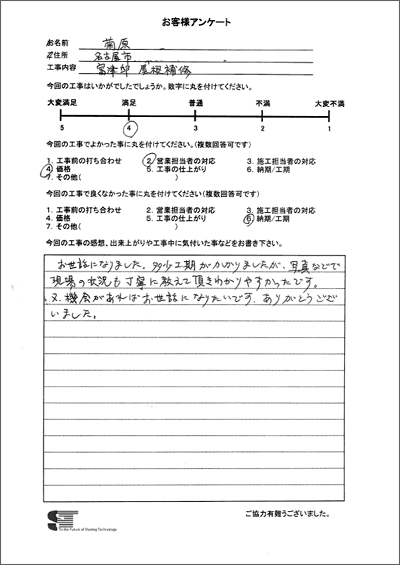 お客様アンケート
お名前 菊原
ご住所 名古屋市
工事内容 富津邸 屋根補修
今回の工事はいかがでしたでしょうか。数字に丸を付けてください。
大変満足 満足 普通 不満 大変不満
5 4 3 2 1
今回の工事でよかった事に丸を付けてください。(複数回答可です)
1. 工事前の打ち合わせ 2. 営業担当者の対応 3. 施工担当者の対応
4. 価格 5. 工事の仕上がり 6. 納期/工期
7. その他( )
今回の工事で良くなかった事に丸を付けてください(複数回答可です)
1. 工事前の打ち合わせ 2. 営業担当者の対応 3. 施工担当者の対応
4. 価格 5. 工事の仕上がり 6. 納期/工期
7. その他( )
今回の工事の感想、出来上がりや工事中に気付いた事などをお書き下さい。
お世話になりました。多少工期がかかりましたが、写真などで
現場の状況も丁寧に教えて頂きわかりやすかったです。
又、機会があればお世話になりたいです、ありがとうござ
いました。
ご協力有難うございました。
To the Future of Sharing Technology